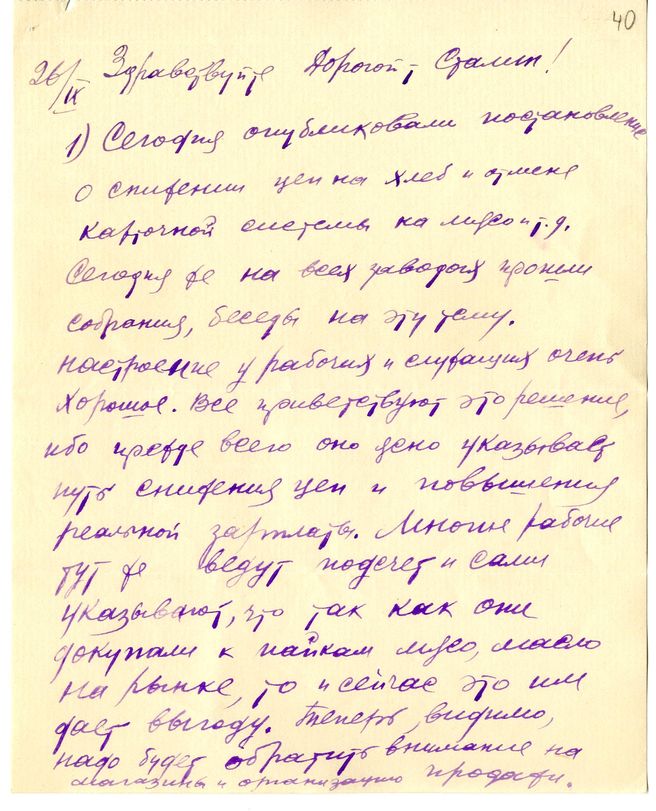 40
26/IX Здравствуйте Дорогой т. Сталин!
1) Сегодня опубликовали постановление
о снижении цен на хлеб и отмене
карточной системы на мясо и т.д.
Сегодня же на всех заводах прошли
собрания, беседы на эту тему.
настроение у рабочих и служащих очень
хорошое. Все приветствуют это решение,
ибо прежде всего оно ясно указывает
путь снижения цен и повышения
реальной зарплаты. Многие рабочие
тут же ведут подсчет и сами
указывают, что так как они
докупали к пайкам мясо, масло
на рынке, то и сейчас это им
дает выгоду. Теперь, видимо,
надо будет обратить внимание на
магазины и организацию продажи.